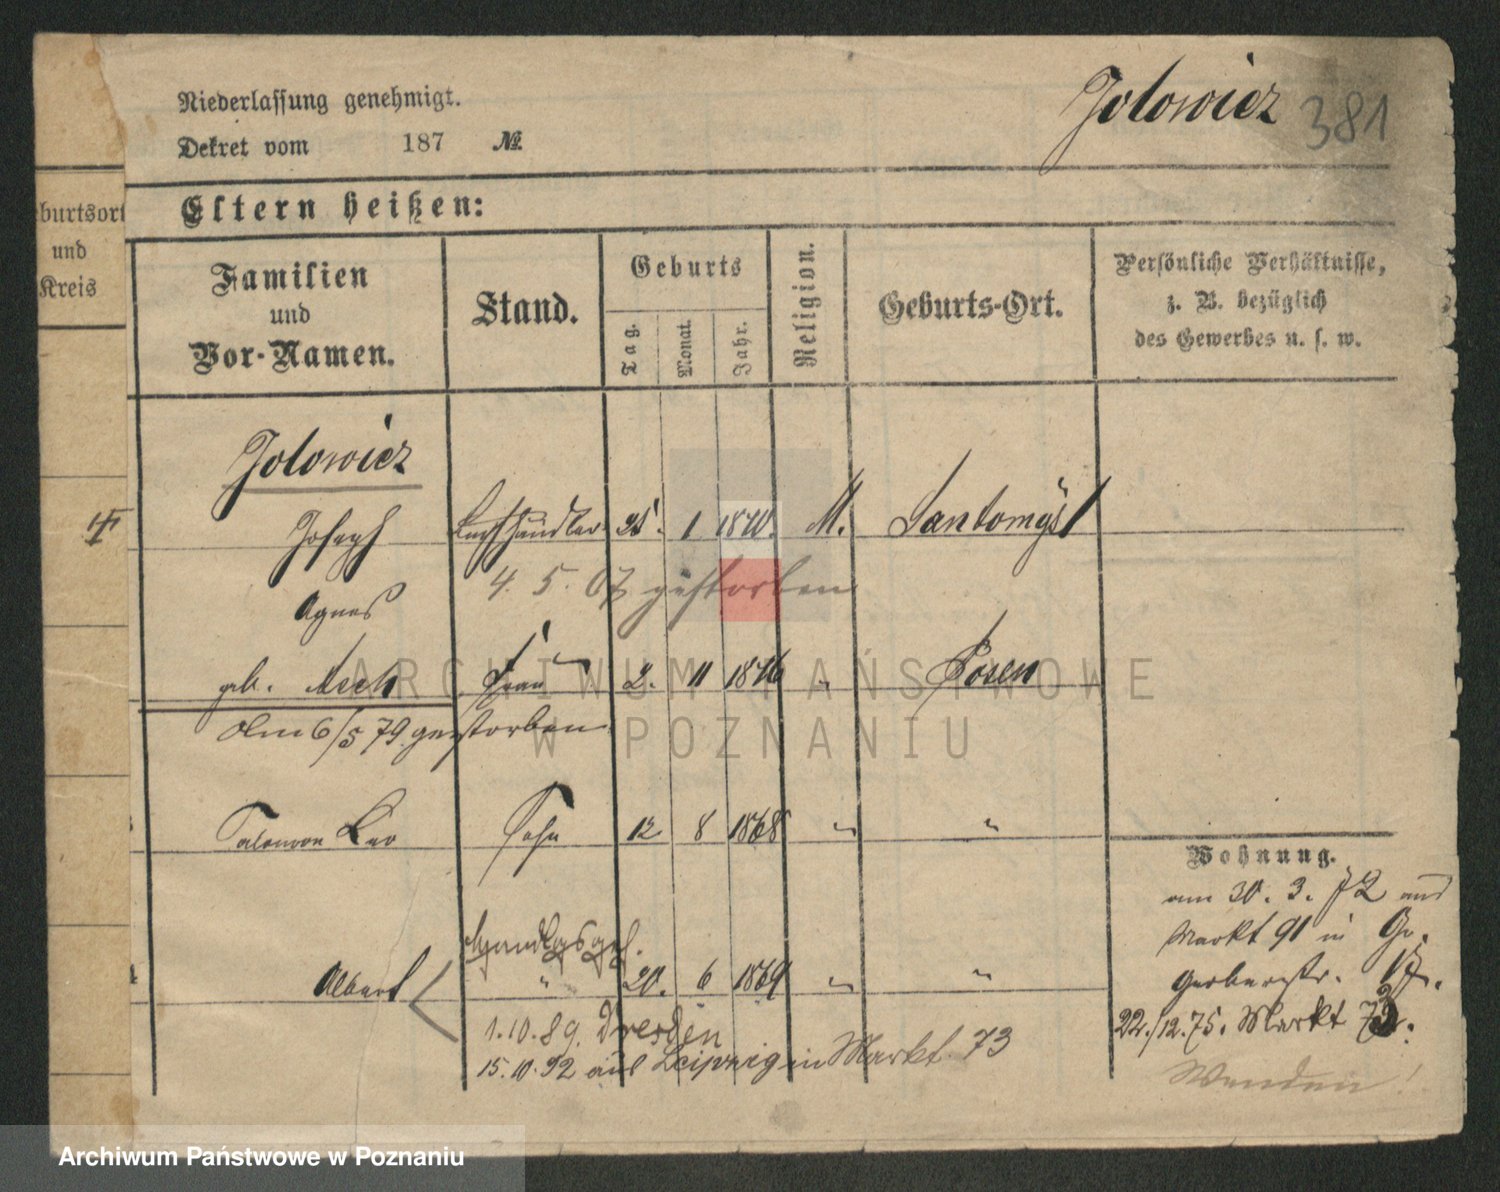 Niederlassung genehmigt.
Dekret vom 187 №
Jolowicz 381
Eltern heißen:
burtsort
und
Kreis
Familien
und
Vor-Namen.
Stand.
Geburts
Tag.
Monat.
Jahr.
Religion.
Geburts-Ort.
Persönliche Verhältnisse,
z. B. bezüglich
des Gewerbes u. s. w.
Jolowicz
Joseph Buchhändler 1 1840. M. Santomysl
4. 5. 07 gestorben
Agnes
geb. Frau 2. 11 1846 " Posen
Am 6/5 79 gestorben
Salomon Leo Sohn 12 8 1868 " "
Handlgsgeh.
Albert " 20. 6 1869 " "
1.10.89. Dresden
15.10.92 aus Leipzig in Markt 73
Wohnung.
am 30. 3. 72 aus
Markt 91 in Gr.
Gerberstr. 17.
22./12.75. Markt
Wenden!
ARCHIWUM PAŃSTWOWE
W POZNANIU
Archiwum Państwowe w Poznaniu